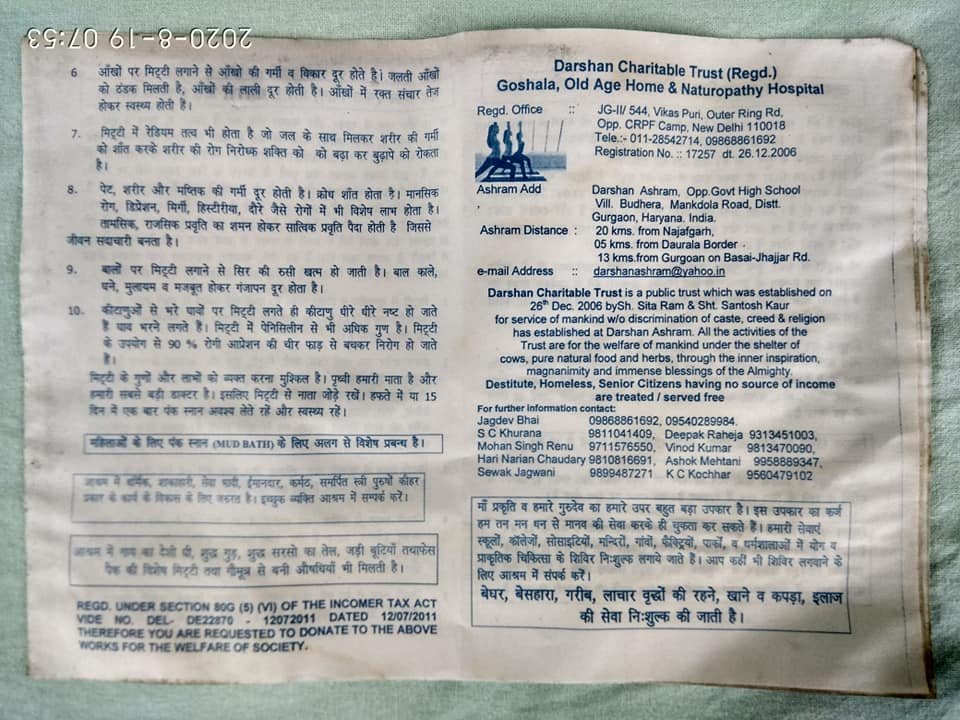 2020-8-19 07:53
6 आँखों पर मिट्टी लगाने से आँखो की गर्मी व विकार दूर होते है। जलती आँखों
को ठंडक मिलती है, आँखों की लाली दूर होती है। आँखों में रक्त संचार तेज
होकर स्वस्थ होती हैं।
7. मिट्टी में रेडियम तत्व भी होता है जो जल के साथ मिलकर शरीर की गर्मी
को शांत करके शरीर की रोग निरोधक शक्ति को को बढ़ा कर बुढ़ापे को रोकता
है।
8. पेट, शरीर और मष्तिक की गर्मी दूर होती है। क्रोध शाँत होता है। मानसिक
रोग, डिप्रेशन, मिर्गी, हिस्टीरीया, दौरे जैसे रोगों में भी विशेष लाभ होता है।
तामसिक, राजसिक प्रवृति का शमन होकर सात्विक प्रवृति पैदा होती है जिससे
जीवन सदाचारी बनता है।
9. बालों पर मिट्टी लगाने से सिर की रुसी खत्म हो जाती है। बाल काले,
घने, मुलायम व मजबूत होकर गंजापन दूर होता है।
10. कीटाणुओं से भरे घावों पर मिट्टी लगते ही कीटाणु धीरे धीरे नष्ट हो जाते
हैं घाव भरने लगते हैं। मिट्टी में पेनिसिलीन से भी अधिक गुण है। मिट्टी
के उपयोग से 90 % रोगी आप्रेशन की चीर फाड़ से बचकर निरोग हो जाते
है।
मिट्टी के गुणों और लाभों को व्यक्त करना मुश्किल है। पृथ्वी हमारी माता है और
हमारी सबसे बड़ी डाक्टर है। इसलिए मिट्टी से नाता जोड़े रखें। हफते में या 15
दिन में एक बार पंक स्नान अवश्य लेते रहें और स्वस्थ रहें।
महिलाओं के लिए पंक स्नान (MUD BATH) के लिए अलग से विशेष प्रबन्ध है।
आश्रम में धार्मिक, शाकाहारी, सेवा भावी, ईमानदार, कर्मठ, समर्पित स्त्री पुरुषों कीहर
प्रकार के कार्य के विकास के लिए जरुरत है। इच्छुक व्यक्ति आश्रम में सम्पर्क करें।
आश्रम में गाय का देशी घी, शुद्ध गुड़, शुद्ध सरसो का तेल, जड़ी बूटियाँ तथाफेस
पैक की विशेष मिट्टी तथा गौमूत्र से बनी औषधियाँ भी मिलती है।
REGD. UNDER SECTION 80G (5) (VI) OF THE INCOMER TAX ACT
VIDE NO. DEL- DE22870 - 12072011 DATED 12/07/2011
THEREFORE YOU ARE REQUESTED TO DONATE TO THE ABOVE
WORKS FOR THE WELFARE OF SOCIETY.
Darshan Charitable Trust (Regd.)
Goshala, Old Age Home & Naturopathy Hospital
Regd. Office :: JG-II/ 544, Vikas Puri, Outer Ring Rd,
Opp. CRPF Camp, New Delhi 110018
Tele.:- 011-28542714, 09868861692
Registration No. :: 17257 dt. 26.12.2006
Ashram Add Darshan Ashram, Opp.Govt High School
Vill. Budhera, Mankdola Road, Distt.
Gurgaon, Haryana. India.
Ashram Distance : 20 kms. from Najafgarh,
05 kms. from Daurala Border
13 kms.from Gurgoan on Basai-Jhajjar Rd.
e-mail Address :: darshanashram@yahoo.in
Darshan Charitable Trust is a public trust which was established on
26th Dec. 2006 bySh. Sita Ram & Sht. Santosh Kaur
for service of mankind w/o discrimination of caste, creed & religion
has established at Darshan Ashram. All the activities of the
Trust are for the welfare of mankind under the shelter of
cows, pure natural food and herbs, through the inner inspiration,
magnanimity and immense blessings of the Almighty.
Destitute, Homeless, Senior Citizens having no source of income
are treated / served free
For further information contact:
Jagdev Bhai 09868861692, 09540289984.
S C Khurana 9811041409, Deepak Raheja 9313451003,
Mohan Singh Renu 9711576550, Vinod Kumar 9813470090,
Hari Narian Chaudary 9810816691, Ashok Mehtani 9958889347,
Sewak Jagwani 9899487271 K C Kochhar 9560479102
माँ प्रकृति व हमारे गुरुदेव का हमारे उपर बहुत बड़ा उपकार है। इस उपकार का कर्ज
हम तन मन धन से मानव की सेवा करके ही चुकता कर सकते हैं। हमारी सेवाएं
स्कूलों, कॉलेजों, सोसाइटियों, मन्दिरों, गांवों, फैक्ट्रियों, पार्कों, व धर्मशालाओं में योग व
प्राकृतिक चिकित्सा के शिविर निःशुल्क लगाये जाते हैं। आप कहीं भी शिविर लगवाने के
लिए आश्रम में संपर्क करें।
बेघर, बेसहारा, गरीब, लाचार वृद्धों की रहने, खाने व कपड़ा, इलाज
की सेवा निःशुल्क की जाती है।